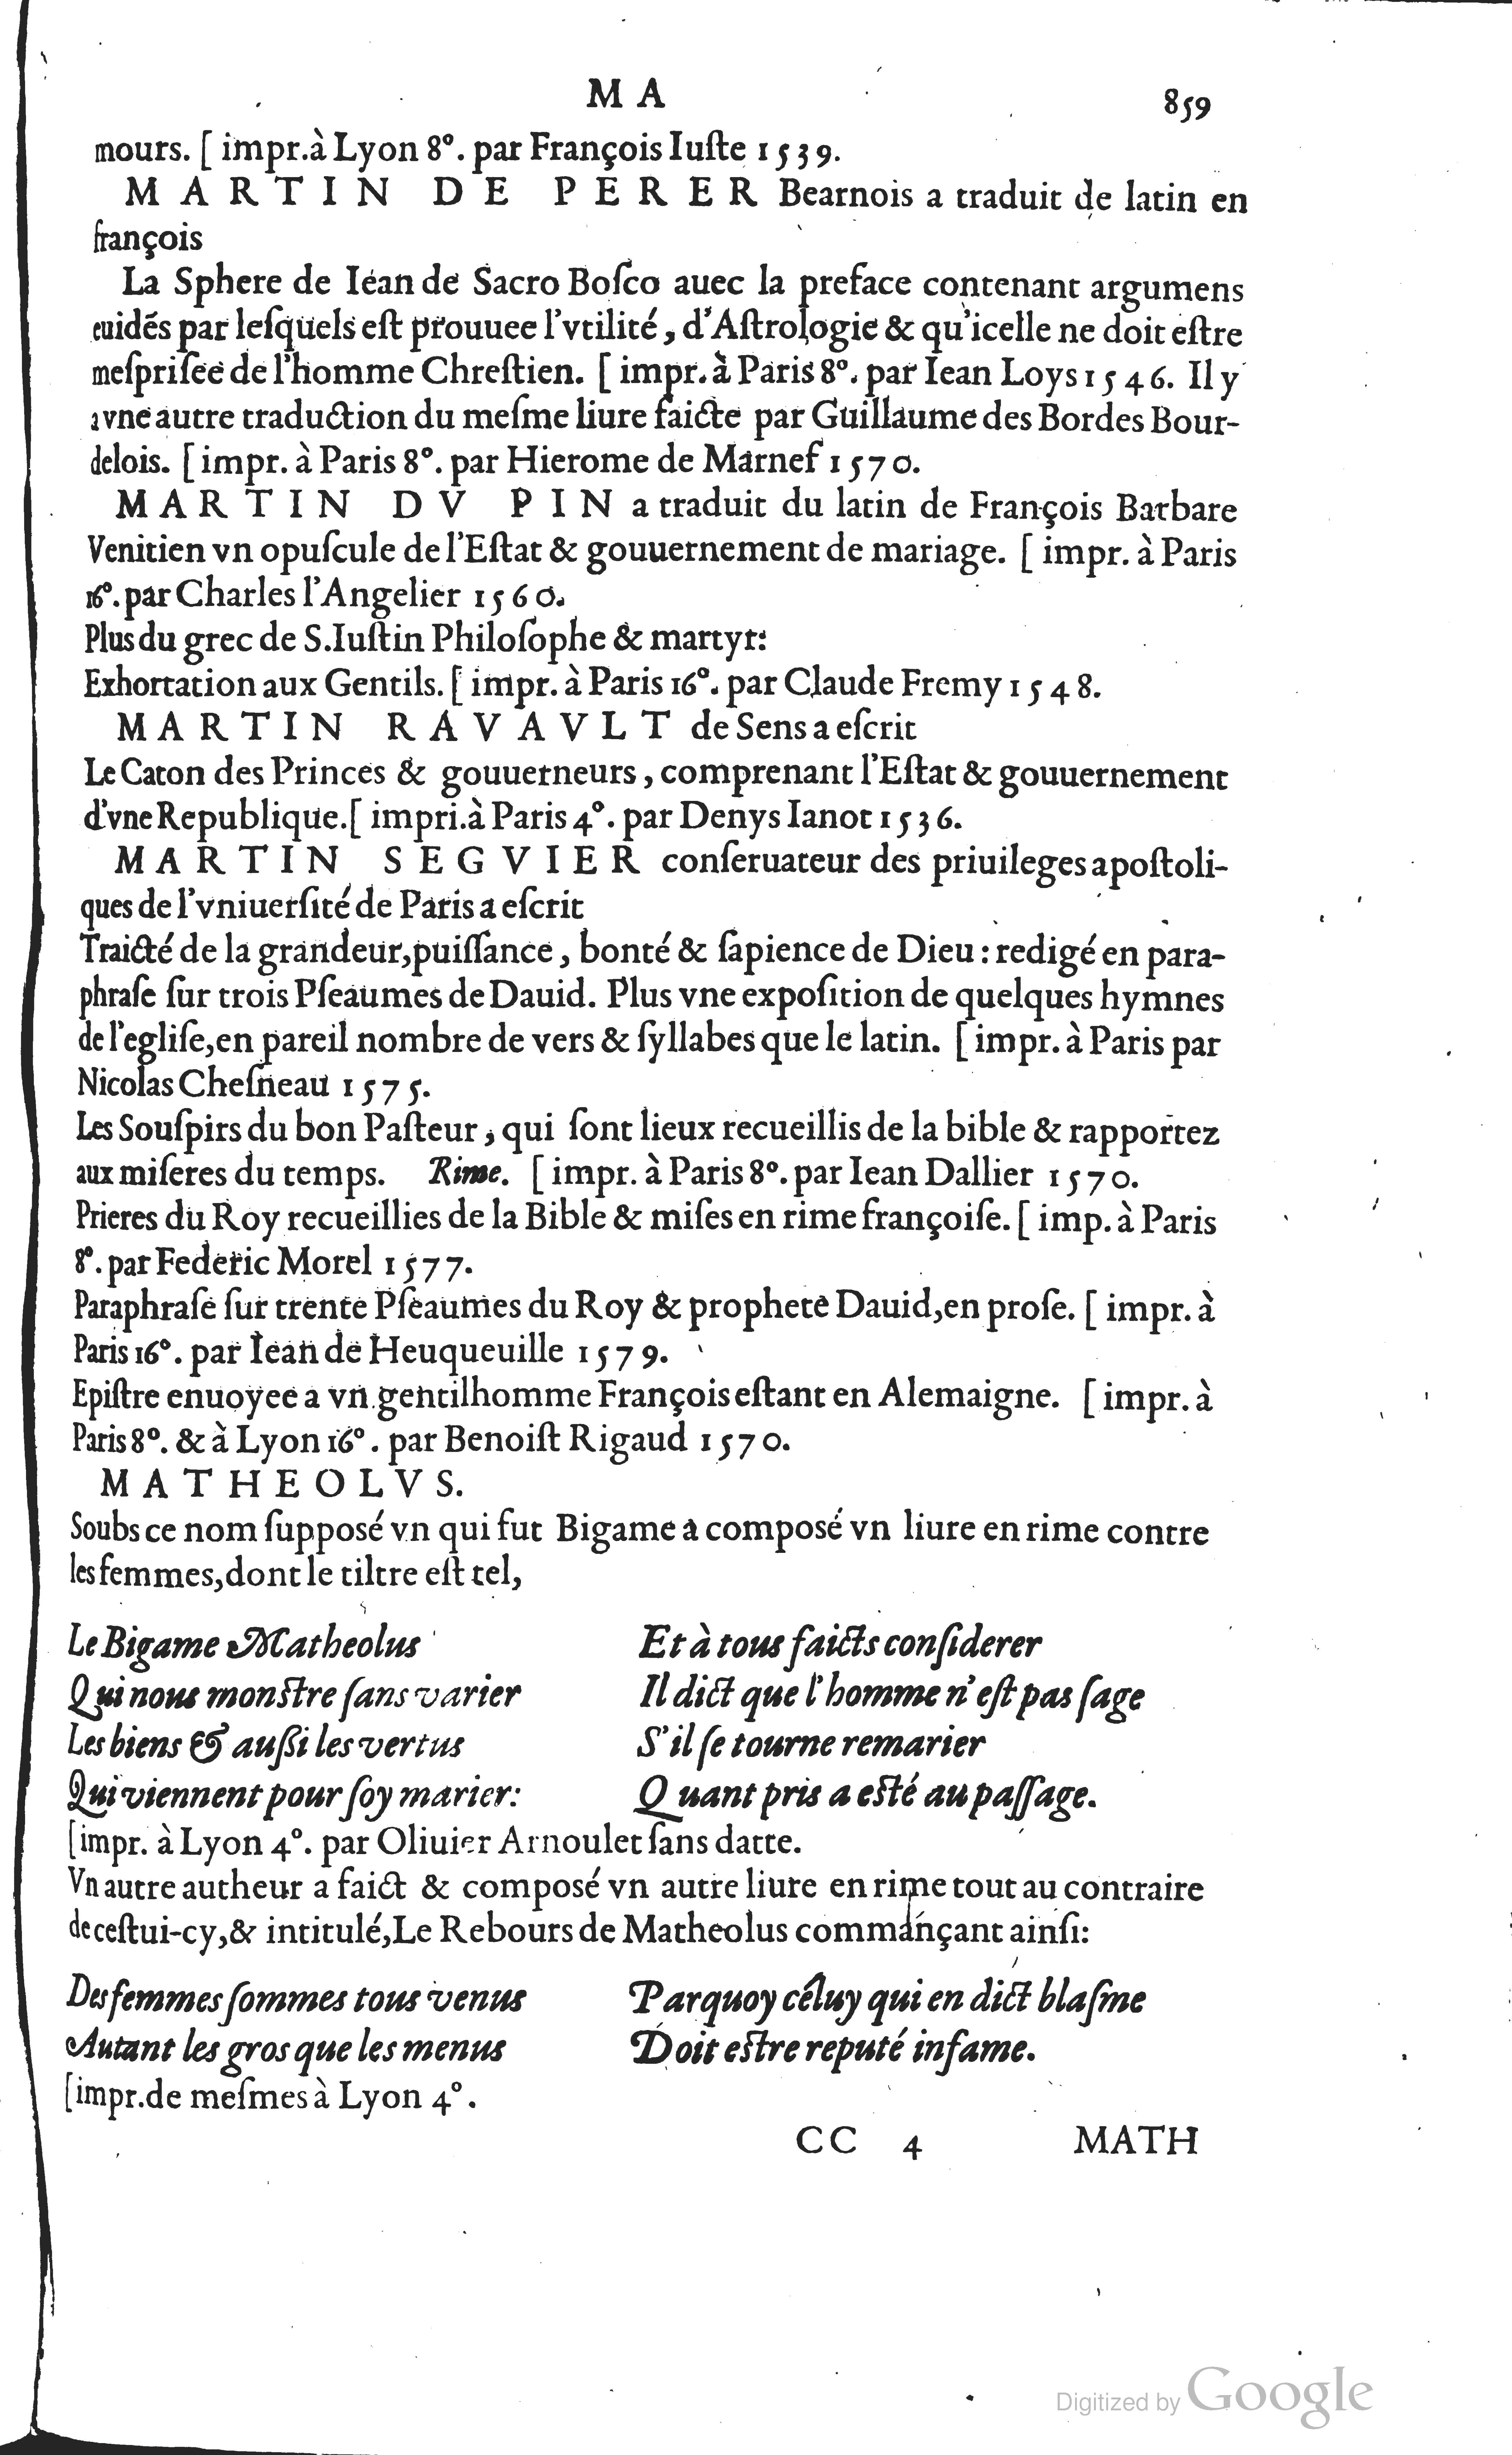 M A 859
mours. [ impr.à Lyon 8°. par François Iuſte 1539.
MARTIN DE PERER Bearnois a traduit de latin en
françois
La Sphere de Iean de Sacro Boſco auec la preface contenant argumens
euidés par leſquels eſt prouuee l'vtilité, d'Aſtrologie & qu'icelle ne doit eſtre
meſpriſee de l'homme Chreſtien. [ impr. à Paris 8°. par Iean Loys 1546. Il y
a vne autre traduction du meſme liure faicte par Guillaume des Bordes Bour-
delois. [ impr. à Paris 8°. par Hierome de Marnef 1570.
MARTIN DV PIN a traduit du latin de François Barbare
Venitien vn opuſcule de l'Eſtat & gouuernement de mariage. [ impr. à Paris
16°. par Charles l'Angelier 1560.
Plus du grec de S. Iuſtin Philoſophe & martyr:
Exhortation aux Gentils. [ impr. à Paris 16°. par Claude Fremy 1548.
MARTIN RAVAVLT de Sens a eſcrit
Le Caton des Princes & gouuerneurs, comprenant l'Eſtat & gouuernement
d'vne Republique. [ impri. à Paris 4°. par Denys Ianot 1536.
MARTIN SEGVIER conſeruateur des priuileges apoſtoli-
ques de l'vniuerſité de Paris a eſcrit
Traicté de la grandeur, puiſſance, bonté & ſapience de Dieu : redigé en para-
phraſe ſur trois Pſeaumes de Dauid. Plus vne expoſition de quelques hymnes
de l'egliſe, en pareil nombre de vers & ſyllabes que le latin. [ impr. à Paris par
Nicolas Cheſneau 1575.
Les Souſpirs du bon Paſteur, qui ſont lieux recueillis de la bible & rapportez
aux miſeres du temps. Rime. [ impr. à Paris 8°. par Iean Dallier 1570.
Prieres du Roy recueillies de la Bible & miſes en rime françoiſe. [ imp. à Paris
8°. par Federic Morel 1577.
Paraphraſe ſur trente Pſeaumes du Roy & prophete Dauid, en proſe. [ impr. à
Paris 16°. par Iean de Heuqueuille 1579.
Epiſtre enuoyee a vn gentilhomme François eſtant en Alemaigne. [ impr. à
Paris 8°. & à Lyon 16°. par Benoiſt Rigaud 1570.
MATHEOLVS.
Soubs ce nom ſuppoſé vn qui fut Bigame a compoſé vn liure en rime contre
les femmes, dont le tiltre eſt tel,
Le Bigame Matheolus
Qui nous monſtre ſans varier
Les biens & auſſi les vertus
Qui viennent pour ſoy marier:
Et à tous faicts conſiderer
Il dict que l'homme n'eſt pas ſage
S'il ſe tourne remarier
Quant pris a eſté au paſſage.
[impr. à Lyon 4°. par Oliuier Arnoulet ſans datte.
Vn autre autheur a faict & compoſé vn autre liure en rime tout au contraire
de ceſtui-cy, & intitulé, Le Rebours de Matheolus commançant ainſi:
Des femmes ſommes tous venus
Autant les gros que les menus
Parquoy celuy qui en dict blaſme
Doit eſtre reputé infame.
[impr. de meſmes à Lyon 4°.
CC 4 MATH
Digitized by Google